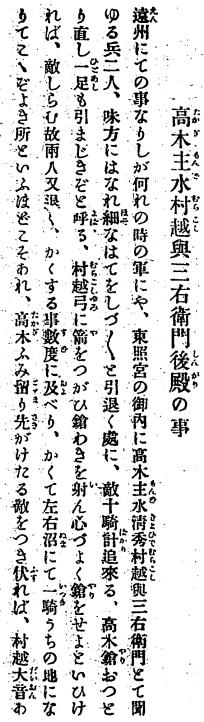 高木主水村越與三右衛門後殿の事
遠州にての事なりしが何れの時の軍にや、東照宮の御內に高木主水淸秀村越與三右衛門とて聞
ゆる兵二人、味方にはなれ細なはてをしづ〳〵と引退く處に、敵十騎計追來る、高木鎗おつと
り直し一足も引まじきぞと呼る、村越弓に箭をつがひ鎗わきを射ん心づよく鎗をせよといひけ
れば、敵しらむ故兩人又退く、かくする事數度に及べり、かくて左右沼にて一騎うちの地にな
りてこゝぞよき所といふほどこそあれ、高木ふみ留り先がけたる敵をつき伏れば、村越大音わ